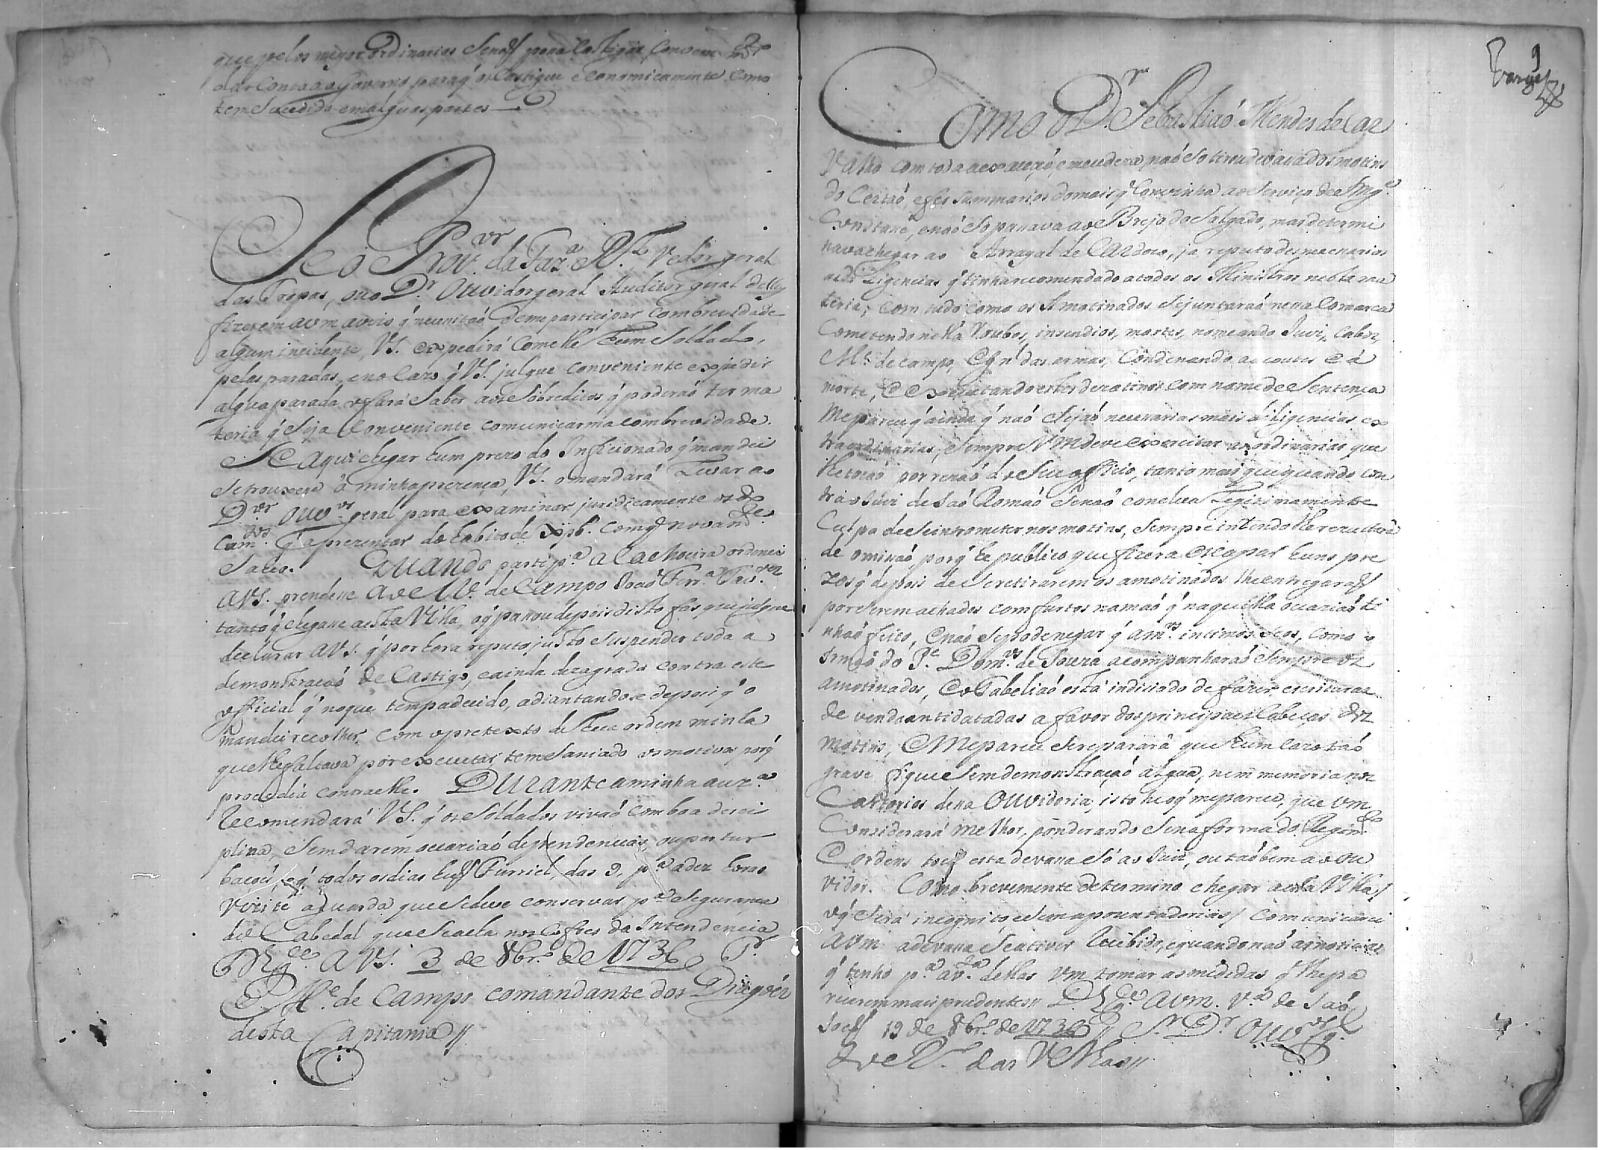 que pelos meyos ordinarios senaõ possa castigar, convem
dar conta ao Governo paraq' os castigue economicamente como
tem sucedido em alguas partes
Se o Prov.or da Faz.a R.l o Vedor geral
das Tropas, ou o D.r Ouvidor geral Auditor geral dellas
fizerem a vm aviso q' necessitaõ de me participar com brevidade
algum incidente, VS. expedirá com elle hum Soldado,
pelas paradas, e no cazo q' VS. julgue conveniente expedir
algua parada, o fará saber aos sobreditos q' poderaõ ter ma
teria q' seja conveniente comunicarma com brevidade.
Se aqui chegar hum prezo do Inficionado q' mandei
se trouxera á minha prezença, VS. o mandará levar ao
D.or Ouv.or geral para examinar juridicamente
Quando parti p.a a Cachoeira ordenei
a VS. prendese ao M.e de Campo Joaõ Ferr.a
tanto q' chegase a esta Villa, o q' pasou depois disto faz que julgue
declarar a VS. q' por hora reputo justo suspender toda a
demonstraçaõ de Castigo, e ainda dezagrado contra este
official q' no que tem padecido, adiantandose depois q' o
mandei recolher, com o pretexto de hua ordem minha
que lhe faltava por executar, tem saneado os motivos porq'
procedia contra elle. Durante a minha auz.a
recomendará VS. q' os Soldados vivaõ com boa deci
plina, sem darem ocaziaõ de pendencias, ou pertur
bacoes, e q' todos os dias hum Furriel, das 9, p.a as dez horas
vizite a guarda que se deve conservar p.a segurança
do Cabedal que se acha nos Cofres da Intendencia
D.s g.e a VS. 3 de 8br.o de 1736 S.r
M.e de Campo comandante dos Dragões
desta Capitania //
9
Como o D.r Sebastiaõ Mendes de Car
valho com toda a execuçaõ e naõ só tirou devaça dos motins
do Certaõ, e fes summarios do mais q' convinha ao Serviço de S. Mag.e
constase, e naõ só pasava ao Brejo do Salgado, mas determi
nava chegar ao Arrayal de Cardozo, já reputo desnecesarias
as deligencias q' tinha recomendado a todos os Ministros nesta ma
teria; com tudo como os Amotinados se juntaraõ nesa Comarca
Cometendo nella roubos, insendios, mortes, nomeando Juiz, Cabos,
M.e de campo, das armas, Condenando a acoutes e á
morte, e executando estes dezatinos com nome de Sentença
Me parece q' ainda q' naõ sejaõ necesarias mais deligencias ex
traordinarias, sempre Vm deve exercitar as ordinarias que
lhe tocaõ por rezaõ do seu officio, tanto mais que quando con
tra o Juiz de Saõ Romaõ se naõ conclua legitimamente
Culpa de se intrometer nos motins, sempre intendo
de omiçaõ porq' he publico que fizera escapar huns pre
zos q' depois de se retirarem os amotinados lhe entregaraõ
por serem achados com furtos na maõ q' naquella ocaziaõ ti
nhaõ feito, e naõ se pode negar q' am.os intimos seos, como o
Irmaõ do P.e Dom.os de Souza acompanharaõ sempre os
amotinados, e o Tabeliaõ está indiciado de fazer escrituras
de venda antidatadas a favor dos principaes Cabeças dos
motins, e me parece se reparará que hum cazo taõ
grave fique sem demonstraçaõ algua, nem memoria nos
Cartorios desa Ouvidoria, isto he o q' me parece, que vm
Considerará melhor, ponderando se na forma do Regim.to
e ordens toca esta devasa só ao Juiz, ou taõbem ao Ou
vidor. Como brevemente determino chegar a esta Villa /
o q' será incognito e sem apozentadorias / comunicarei
a vm a devasa se a tiver recibido, e quando naõ as noticias
q' tenho p.a á v.ta dellas vm tomar as medidas q' lhe pa
recerem mais prudentes // D.s g.e a vm. V.a de Saõ
Joaõ 19 de 8br.o de 1736 S.r D.r Ouv.or g.l
do R.o das Velhas //